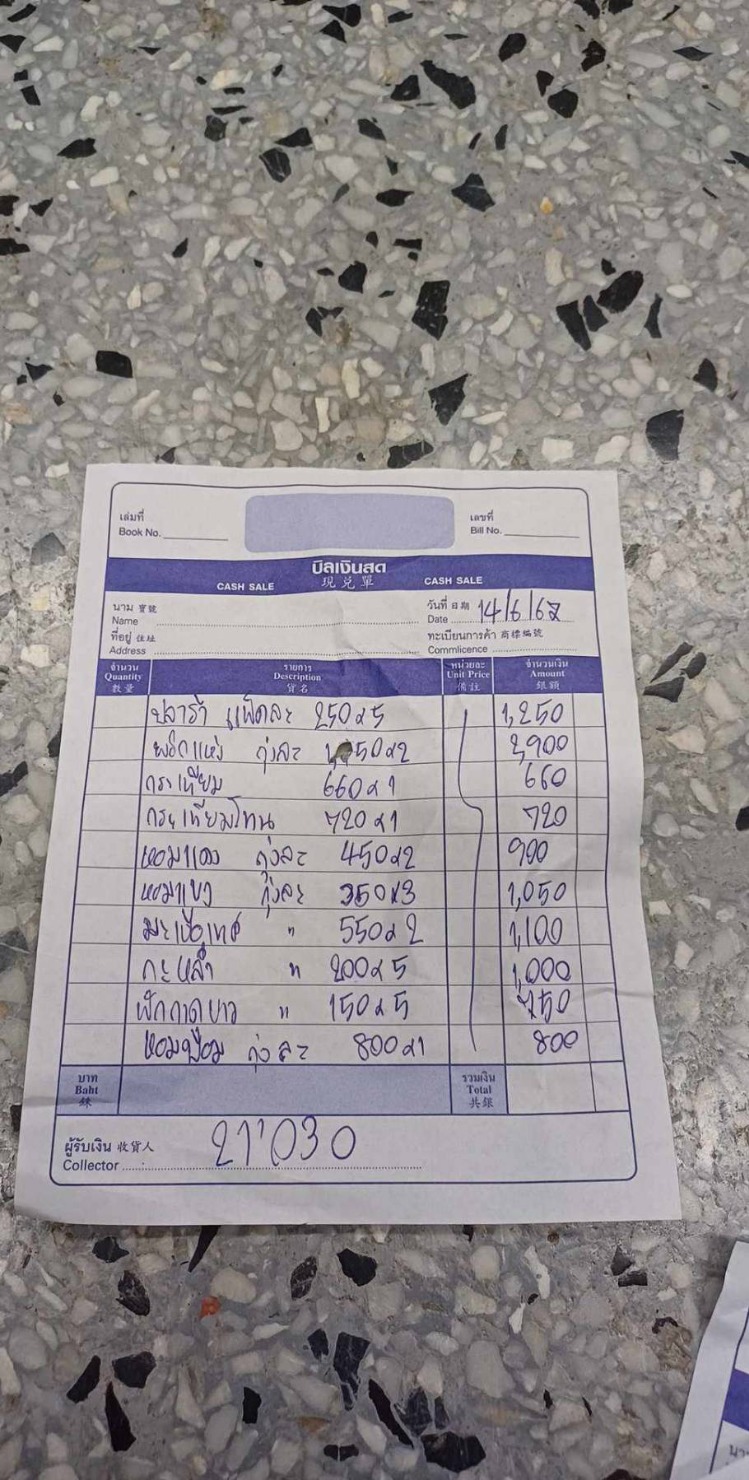 เล่มที่
Book No.
เลขที่
Bill No.
บิลเงินสด
CASH SALE 現兌單 CASH SALE
นาม 寶號
Name
วันที่ 日期
Date 14/6/67
ที่อยู่ 住址
Address
ทะเบียนการค้า 商標編號
Commlicence
จำนวน Quantity 數量
รายการ Description 貨名
หน่วยละ Unit Price 備註
จำนวนเงิน Amount 銀額
ปลาร้า แพ็คละ 250x5 1,250
พริกแห้ง ถุงละ 1,450x2 2,900
กระเทียม 660x1 660
กระเทียมโทน 720x1 720
หอมแดง ถุงละ 450x2 900
หอมแขก ถุงละ 350x3 1,050
มะเขือเทศ " 550x2 1,100
กะหล่ำ " 200x5 1,000
ผักกาดขาว " 150x5 750
หอมป้อม ถุงละ 800x1 800
บาท
Baht
銖
รวมเงิน
Total
共銀
ผู้รับเงิน 收貨人
Collector 21'030